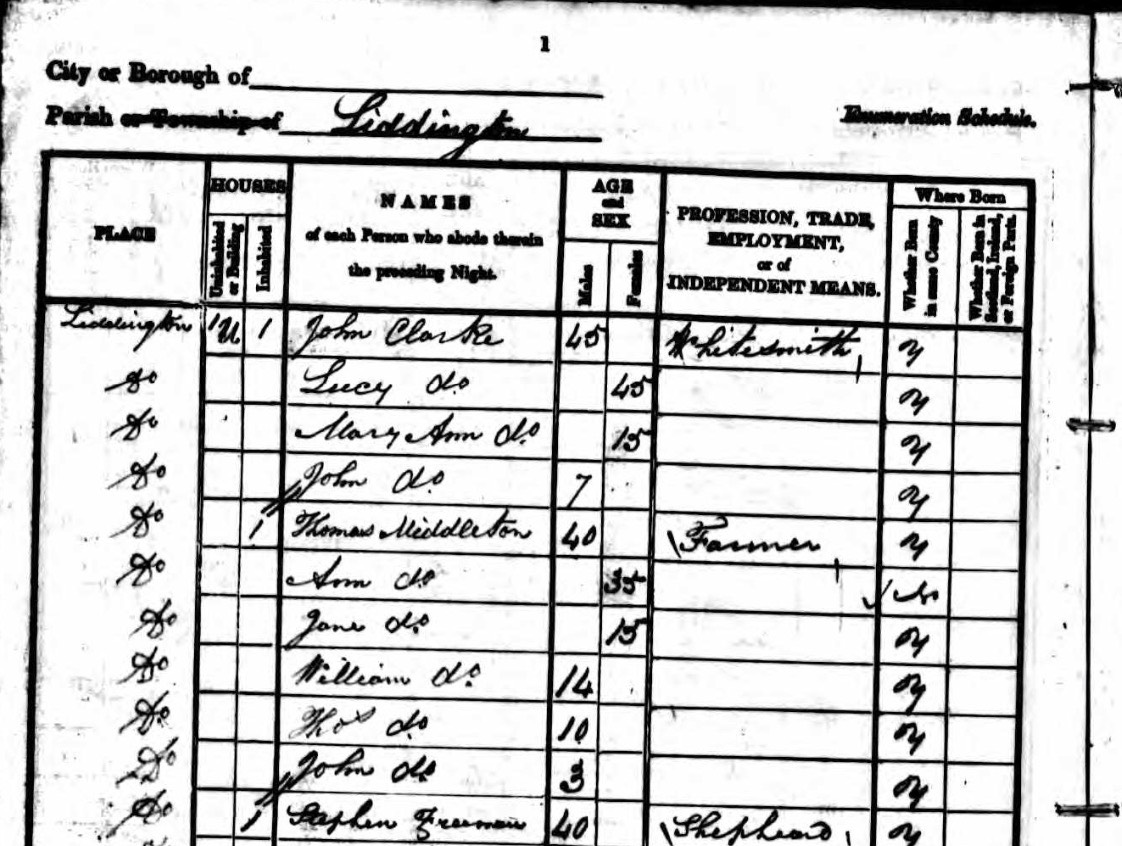 1
City or Borough of
Parish or Township of Liddington
Enumeration Schedule.
PLACE
HOUSES
Uninhabited or Building
Inhabited
NAMES
of each Person who abode therein
the preceding Night.
AGE
and
SEX
Males
Females
PROFESSION, TRADE,
EMPLOYMENT,
or of
INDEPENDENT MEANS.
Where Born
Whether Born in same County
Whether Born in Scotland, Ireland, or Foreign Parts.
Liddington 1U 1 John Clarke 45 Whitesmith y
Do Lucy do 45 y
Do Mary Ann do 15 y
Do John do 7 y
Do 1 Thomas Middleton 40 Farmer y
Do Ann do 35 No
Do Jane do 15 y
Do William do 14 y
Do Thos do 10 y
Do John do 3 y
Do 1 Stephen Freeman 40 Shepheard y